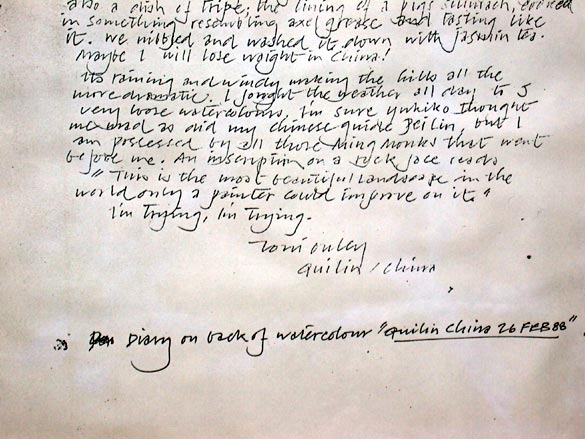 also a dish of tripe, the lining of a pigs stomach, cooked
in something resembling axel grease and tasting like
it. We nibbled and washed it down with jasmin tea.
Maybe I will lose weight in China!
Its raining and windy making the hills all the
more dramatic. I fought the weather all day to 5
very loose watercolours, I'm sure Yukiko thought
me mad as did my chinese guide Beilin, but I
am possessed by all those Ming Monks that went
before me. An inscription on a rock face reads
"This is the most beautiful landscape in the
world only a painter could improve on it."
I'm trying, I'm trying.
Toni Onley
Guilin / China
Diary on back of watercolour "Guilin China 26 FEB 88"